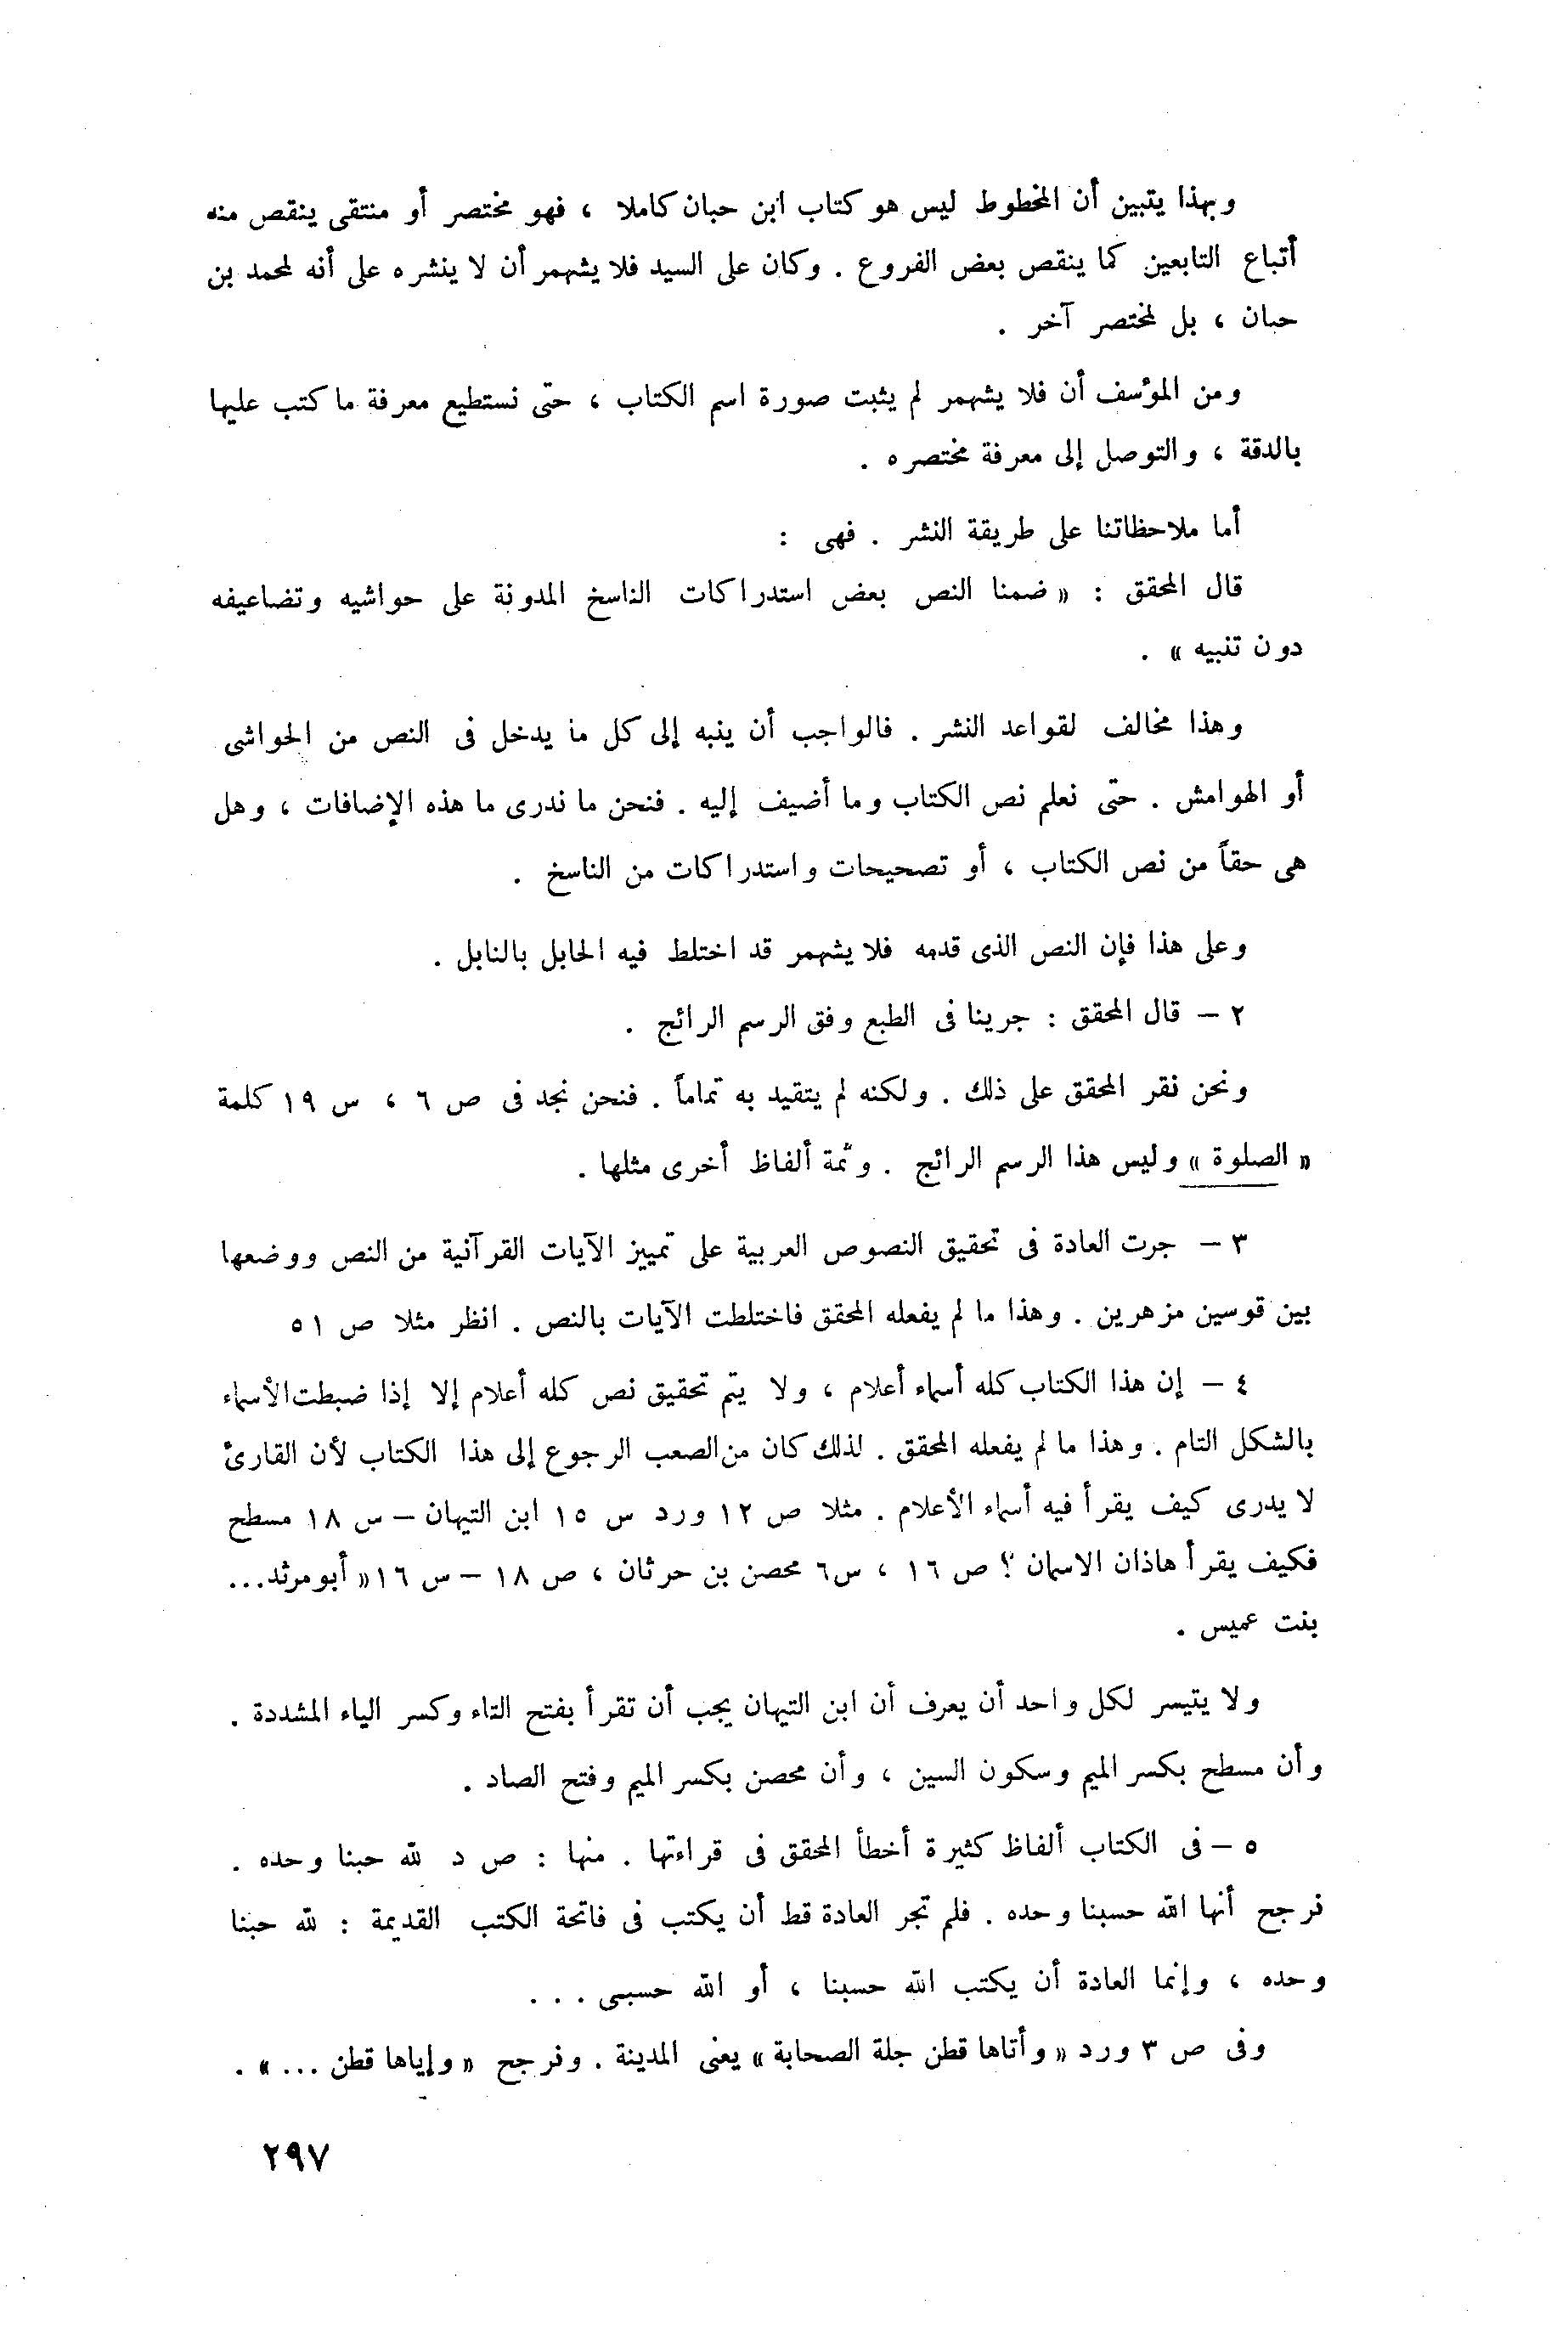 وبهذا يتبين أن المخطوط ليس هو كتاب ابن حبان كاملا ، فهو مختصر أو منتقى ينقص منه
أتباع التابعين كما ينقص بعض الفروع . وكان على السيد فلايشهمر أن لا ينشره على أنه لمحمد بن
حبان ، بل لمختصر آخر .
ومن المؤسف أن فلايشهمر لم يثبت صورة اسم الكتاب ، حتى نستطيع معرفة ما كتب عليها
بالدقة ، والتوصل إلى معرفة مختصره .
أما ملاحظاتنا على طريقة النشر . فهى :
قال المحقق : « ضمنا النص بعض استدراكات الناسخ المدونة على حواشيه وتضاعيفه
دون تنبيه » .
وهذا مخالف لقواعد النشر . فالواجب أن ينبه إلى كل ما يدخل فى النص من الحواشى
أو الهوامش . حتى نعلم نص الكتاب وما أضيف إليه . فنحن ما ندرى ما هذه الإضافات ، وهل
هى حقاً من نص الكتاب ، أو تصحيحات واستدراكات من الناسخ .
وعلى هذا فإن النص الذى قدمه فلايشهمر قد اختلط فيه الحابل بالنابل .
٢ – قال المحقق : جرينا فى الطبع وفق الرسم الرائج .
ونحن نقر المحقق على ذلك . ولكنه لم يتقيد به تماماً . فنحن نجد فى ص ٦ ، س ١٩ كلمة
« الصلوة » وليس هذا الرسم الرائج . وثمة ألفاظ أخرى مثلها .
٣ – جرت العادة فى تحقيق النصوص العربية على تمييز الآيات القرآنية من النص ووضعها
بين قوسين مزهرين . وهذا ما لم يفعله المحقق فاختلطت الآيات بالنص . انظر مثلا ص ٥١
٤ – إن هذا الكتاب كله أسماء أعلام ، ولا يتم تحقيق نص كله أعلام إلا إذا ضبطت الأسماء
بالشكل التام . وهذا ما لم يفعله المحقق . لذلك كان من الصعب الرجوع إلى هذا الكتاب لأن القارئ
لا يدرى كيف يقرأ فيه أسماء الأعلام . مثلا ص ١٢ ورد س ١٥ ابن التيهان – س ١٨ مسطح
فكيف يقرأ هاذان الاسمان ؟ ص ١٦ ، س٦ محصن بن حرثان ، ص ١٨ – س ١٦ « أبو مرثد...
بنت عميس .
ولا يتيسر لكل واحد أن يعرف أن ابن التيهان يجب أن تقرأ بفتح التاء وكسر الياء المشددة .
وأن مسطح بكسر الميم وسكون السين ، وأن محصن بكسر الميم وفتح الصاد .
٥ – فى الكتاب ألفاظ كثيرة أخطأ المحقق فى قراءتها . منها : ص د لله حبنا وحده .
نرجح أنها الله حسبنا وحده . فلم تجر العادة قط أن يكتب فى فاتحة الكتب القديمة : لله حبنا
وحده ، وإنما العادة أن يكتب الله حسبنا ، أو الله حسبى . . .
وفى ص ٣ ورد « وأتاها قطن جلة الصحابة » يعنى المدينة . ونرجح « وإياها قطن ... » .
٢٩٧